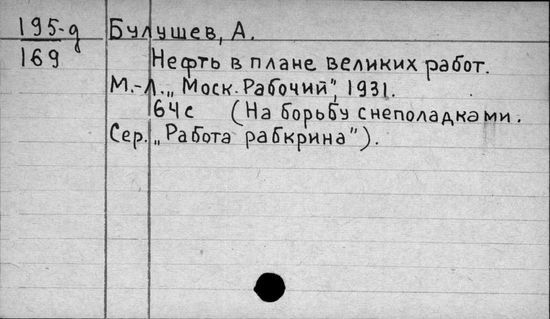 195-д
169
Булушев, А.
Нефть в плане великих работ.
М.-Л. „Моск. Рабочий", 1931.
64с (На борьбу снеполадками.
Сер. „Работа рабкрина").